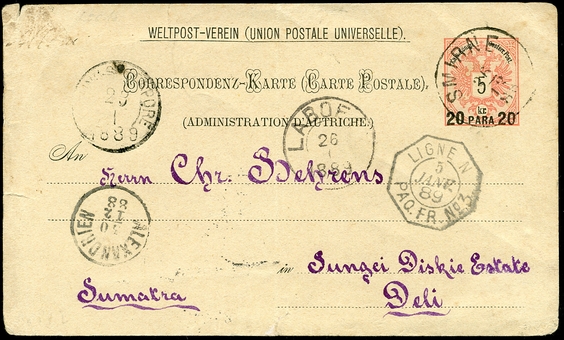 WELTPOST-VEREIN (UNION POSTALE UNIVERSELLE).
CORRESPONDENZ-KARTE (CARTE POSTALE),
(ADMINISTRATION D'AUTRICHE.)
SMIRNE
5
kr
20 PARA 20
1889
LABOE
26
1889
LIGNE N
5
JANV
89
PAQ. FR. No 3
ALEXANDRIEN
30
12
88
An
Herrn Chr. Behrens
in Sungei Diskie Estate
Sumatra
Deli